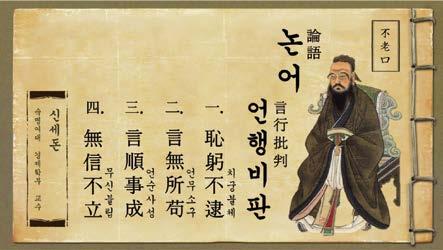 不老口
論語
논어
言行批判
언행비판
一. 恥躬不逮
치궁불체
二. 言無所苟
언무소구
三. 言順事成
언순사성
四. 無信不立
무신불립
신세돈
숙명여대 경제학부 교수